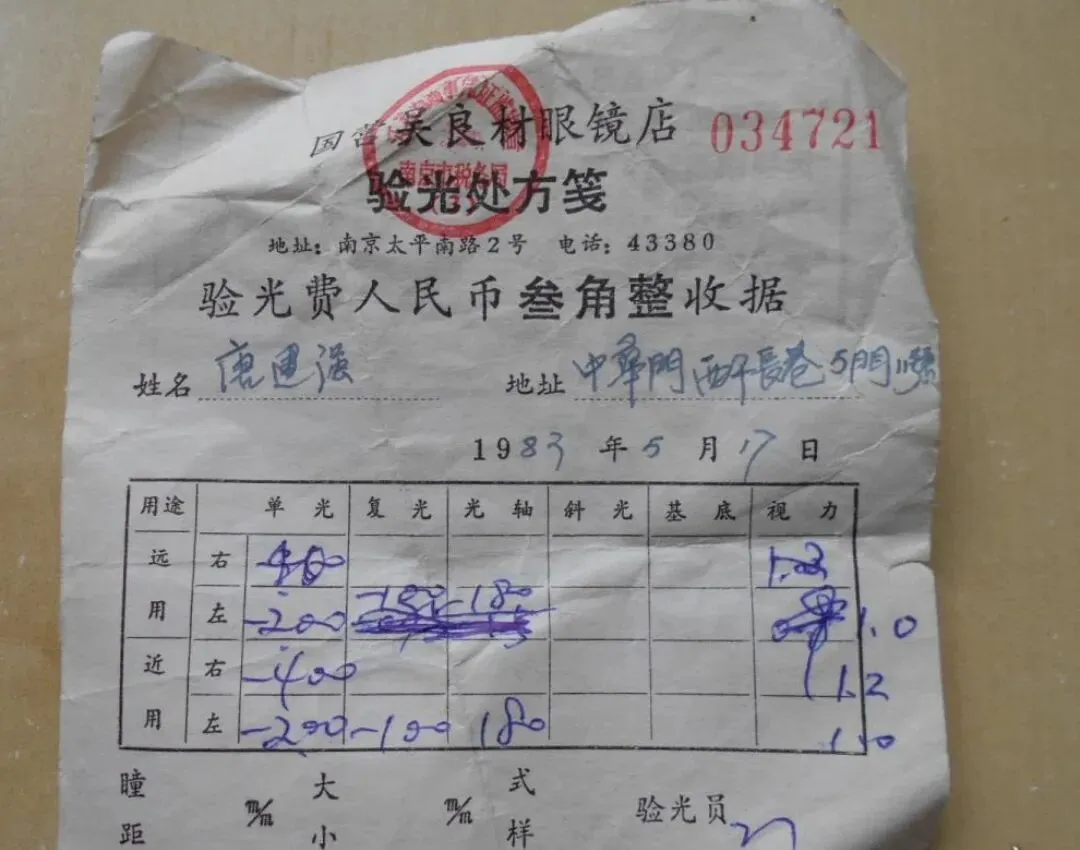 国营吴良材眼镜店 034721
南京市税务局
验光处方笺
地址：南京太平南路2号 电话：43380
验光费人民币叁角整收据
姓名 唐建强 地址 中華門西干長巷5門11號
1983年5月17日
用途 单光 复光 光轴 斜光 基底 视力
远 右
用 左 -200 -100 -180 1.0
近 右 -400 1.2
用 左 -200 -100 180 1.0
瞳距 m/m 大小 m/m 式样 验光员